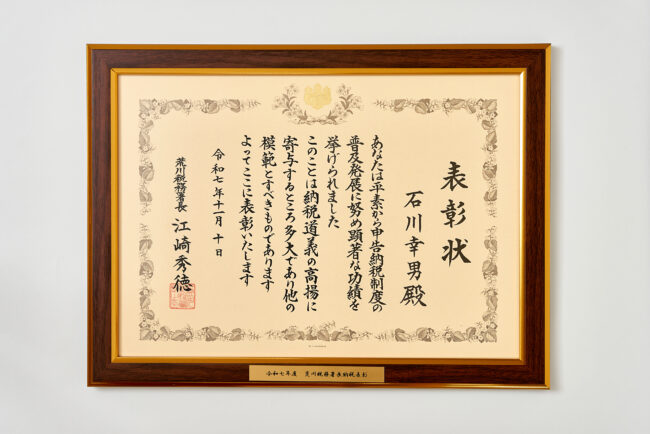 表彰状
石川幸男殿
あなたは平素から申告納税制度の
普及発展に努め顕著な功績を
挙げられました
このことは納税道義の高揚に
寄与するところ多大であり他の
模範とすべきものであります
よってここに表彰いたします
令和七年十一月十日
荒川税務署長 江崎秀徳
令和七年度 荒川税務署長納税表彰